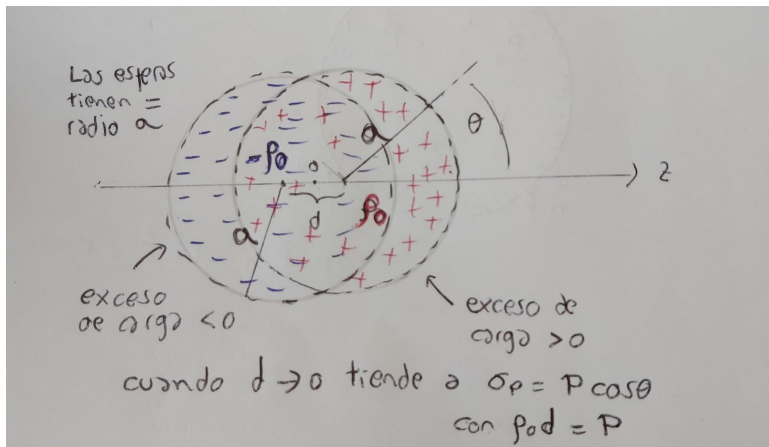 Las esferas
tienen =
radio a
θ
a
-ρ0
o
z
d
ρ0
a
exceso
de carga <0
exceso de
carga >0
cuando d→0 tiende a σp = P cosθ
con ρ0d = P